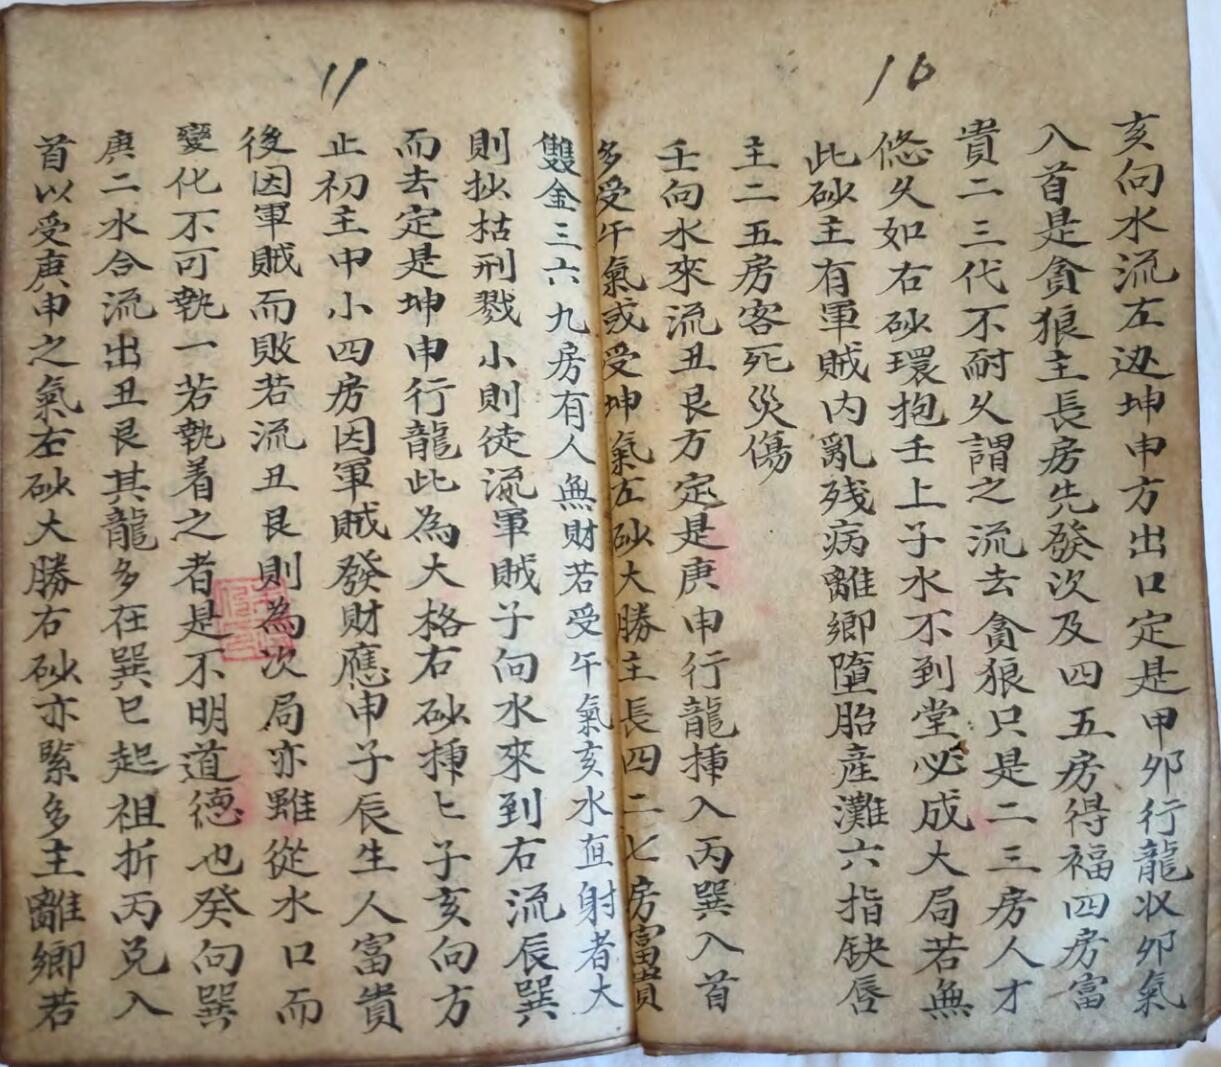 10
亥向水流左边坤申方出口定是甲卯行龍収卯氣
入首是貪狼主長房先發次及四五房得福四房富
貴二三代不耐久謂之流去貪狼只是二三房人才
悠久如右砂環抱壬上子水不到堂必成大局若無
此砂主有軍賊内亂残病離鄉墮胎產灘六指缺唇
主二五房客死災傷
壬向水來流丑艮方定是庚申行龍揷入丙巽入首
多受午氣或受坤氣左砂大勝主長四二七房富貴
11
雙金三六九房有人無財若受午氣亥水直射者大
則抄枯刑戮小則徒流軍賊子向水來到右流辰巽
而去定是坤申行龍此為大格右砂揷匕子亥向方
止初主中小四房因軍賊發財應申子辰生人富貴
後因軍賊而敗若流丑艮則為次局亦雖從水口而
變化不可執一若執着之者是不明道德也癸向巽
庚二水合流出丑艮其龍多在巽巳起祖折丙兑入
首以受庚申之氣左砂大勝右砂亦緊多主離鄉若